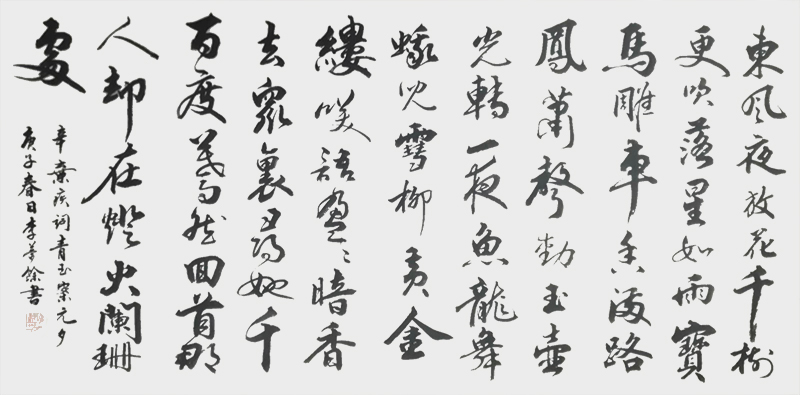 東風夜放花千樹
更吹落星如雨寶
馬雕車香滿路
鳳蕭聲動玉壺
光轉一夜魚龍舞
蛾兒雪柳黃金
縷咲語盈〻暗香
去衆裏尋她千
百度驀然回首那
人却在燈火闌珊
處
辛棄疾詞青玉案元夕
庚子春日李餘書